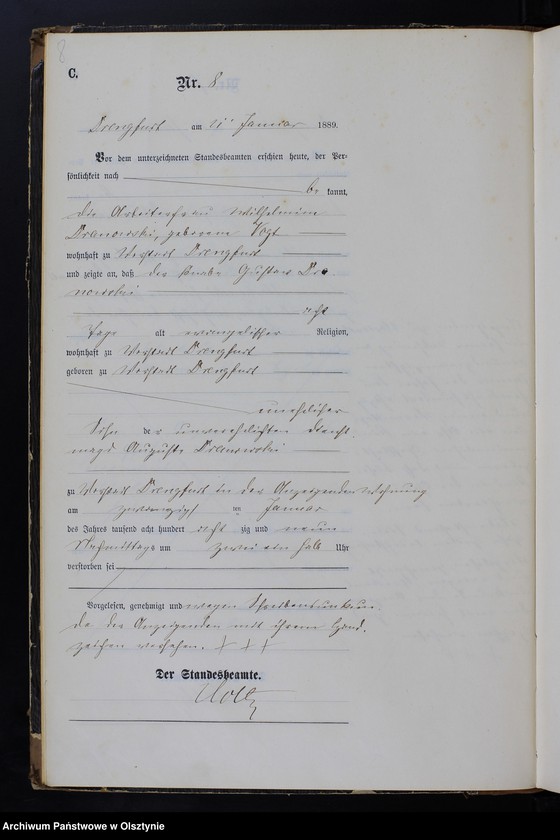 8
C.
Nr. 8.
Drengfurt am 21. Januar 1889.
Vor dem unterzeichneten Standesbeamten erschien heute, der Per-
sönlichkeit nach
be kannt,
die Arbeiterfrau Wilhelmine
geborene Vogt
wohnhaft zu Vorstadt Drengfurt
und zeigte an, daß der Knabe Gustav
acht
Tage alt evangelischer Religion,
wohnhaft zu Vorstadt Drengfurt
geboren zu Vorstadt Drengfurt
unehelicher
Sohn der unverehelichten Dienst-
magd Auguste
zu Vorstadt Drengfurt in der Anzeigenden Wohnung
am zwanzigsten Januar
des Jahres tausend acht hundert acht zig und neun
Nachmittags um zwei ein halb Uhr
verstorben sei
Vorgelesen, genehmigt und wegen Schreibensunkun-
de der Anzeigenden mit ihrem Hand-
zeichen versehen. + + +
Der Standesbeamte.
Archiwum Państwowe w Olsztynie